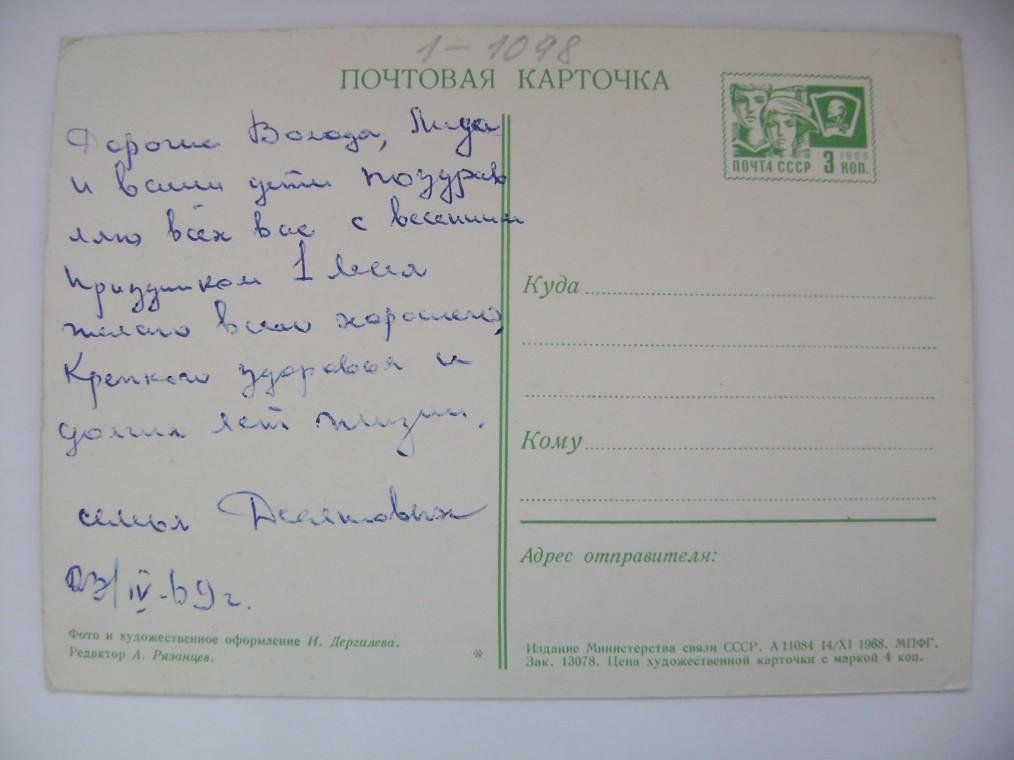 1-1098
ПОЧТОВАЯ КАРТОЧКА
ПОЧТА СССР 3 КОП.
1966
Дорогие Володя, Лида
и ваши дети поздрав
ляю всех вас с весенним
праздником 1 Мая
желаю всего хорошего,
Крепкого здоровья и
долгих лет жизни.
семья
23/IV-69г.
Куда
Кому
Адрес отправителя:
Фото и художественное оформление И. Дергилева.
Редактор А. Рязанцев.
*
Издание Министерства связи СССР. А 11084 14/XI 1968. МПФГ.
Зак. 13078. Цена художественной карточки с маркой 4 коп.